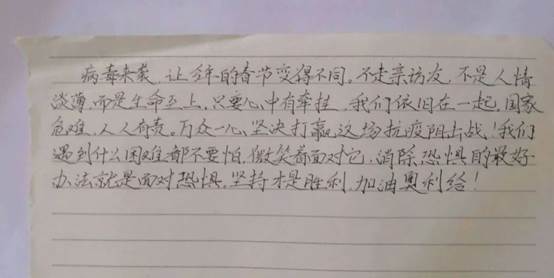 病毒来袭，让今年的春节变得不同。不走亲访友，不是人情
淡薄，而是生命至上，只要心中有牵挂，我们依旧在一起，国家
危难，人人有责。万众一心，坚决打赢这场抗疫阻击战！我们
遇到什么困难都不要怕，微笑着面对它，消除恐惧的最好
办法就是面对恐惧，坚持才是胜利，加油奥利给！